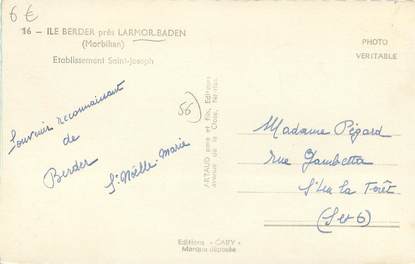 6 €
16 — ILE BERDER près LARMOR-BADEN
(Morbihan)
Etablissement Saint-Joseph
PHOTO
VERITABLE
56
Souvenir reconnaissant
de
Berder
Sr Noëlle-Marie
ARTAUD père et fils, Editeurs
avenue de la Close, Nantes
Madame Pégard
rue Gambetta
St Leu la Forêt
(S et O)
Editions "GABY"
Marque déposée